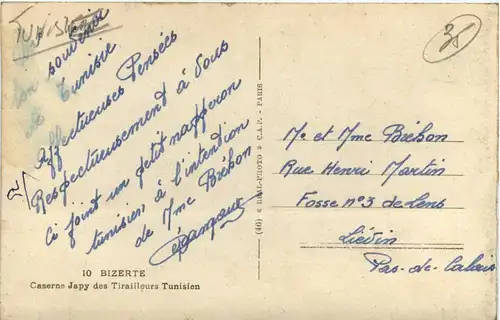 TUNISIE
Un souvenir
de Tunisie
Affectueuses Pensées
Respectueusement à Vous
Ci joint un petit napperon
tunisien à l'intention
de Mme Bréhon
10 BIZERTE
Caserne Japy des Tirailleurs Tunisien
(46) « REAL-PHOTO » C.A.P. - PARIS
35
Mr et Mme Bréhon
Rue Henri Martin
Fosse n° 3 de Lens
Liévin
Pas-de-Calais